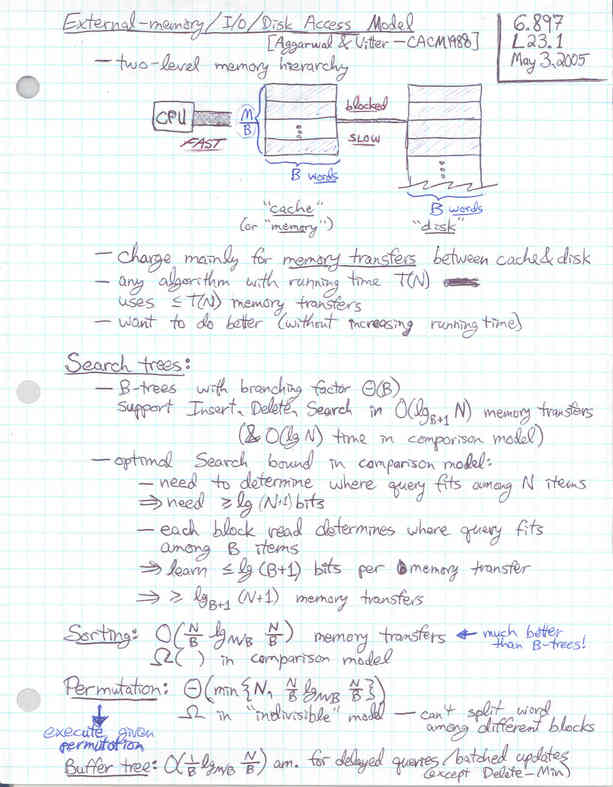 External-memory/I/O/Disk Access Model
[Aggarwal & Vitter - CACM 1988]
6.897
L23.1
May 3, 2005
- two-level memory hierarchy
CPU
FAST
M/B
blocked
SLOW
B words
B words
"cache"
(or "memory")
"disk"
- charge mainly for memory transfers between cache & disk
- any algorithm with running time T(N)
uses ≤ T(N) memory transfers
- want to do better (without increasing running time)
Search trees:
- B-trees with branching factor Θ(B)
support Insert, Delete, Search in O(lg_{B+1} N) memory transfers
(& O(lg N) time in comparison model)
- optimal Search bound in comparison model:
- need to determine where query fits among N items
⇒ need ≥ lg (N+1) bits
- each block read determines where query fits
among B items
⇒ learn ≤ lg (B+1) bits per memory transfer
⇒ ≥ lg_{B+1} (N+1) memory transfers
Sorting: O(N/B lg_{M/B} N/B) memory transfers ← much better
than B-trees!
Ω( ) in comparison model
Permutation: Θ(min{N, N/B lg_{M/B} N/B})
Ω in "indivisible" model - can't split word
among different blocks
execute given
permutation
Buffer tree: O(1/B lg_{M/B} N/B) am. for delayed queries/batched updates
(except Delete-Min)